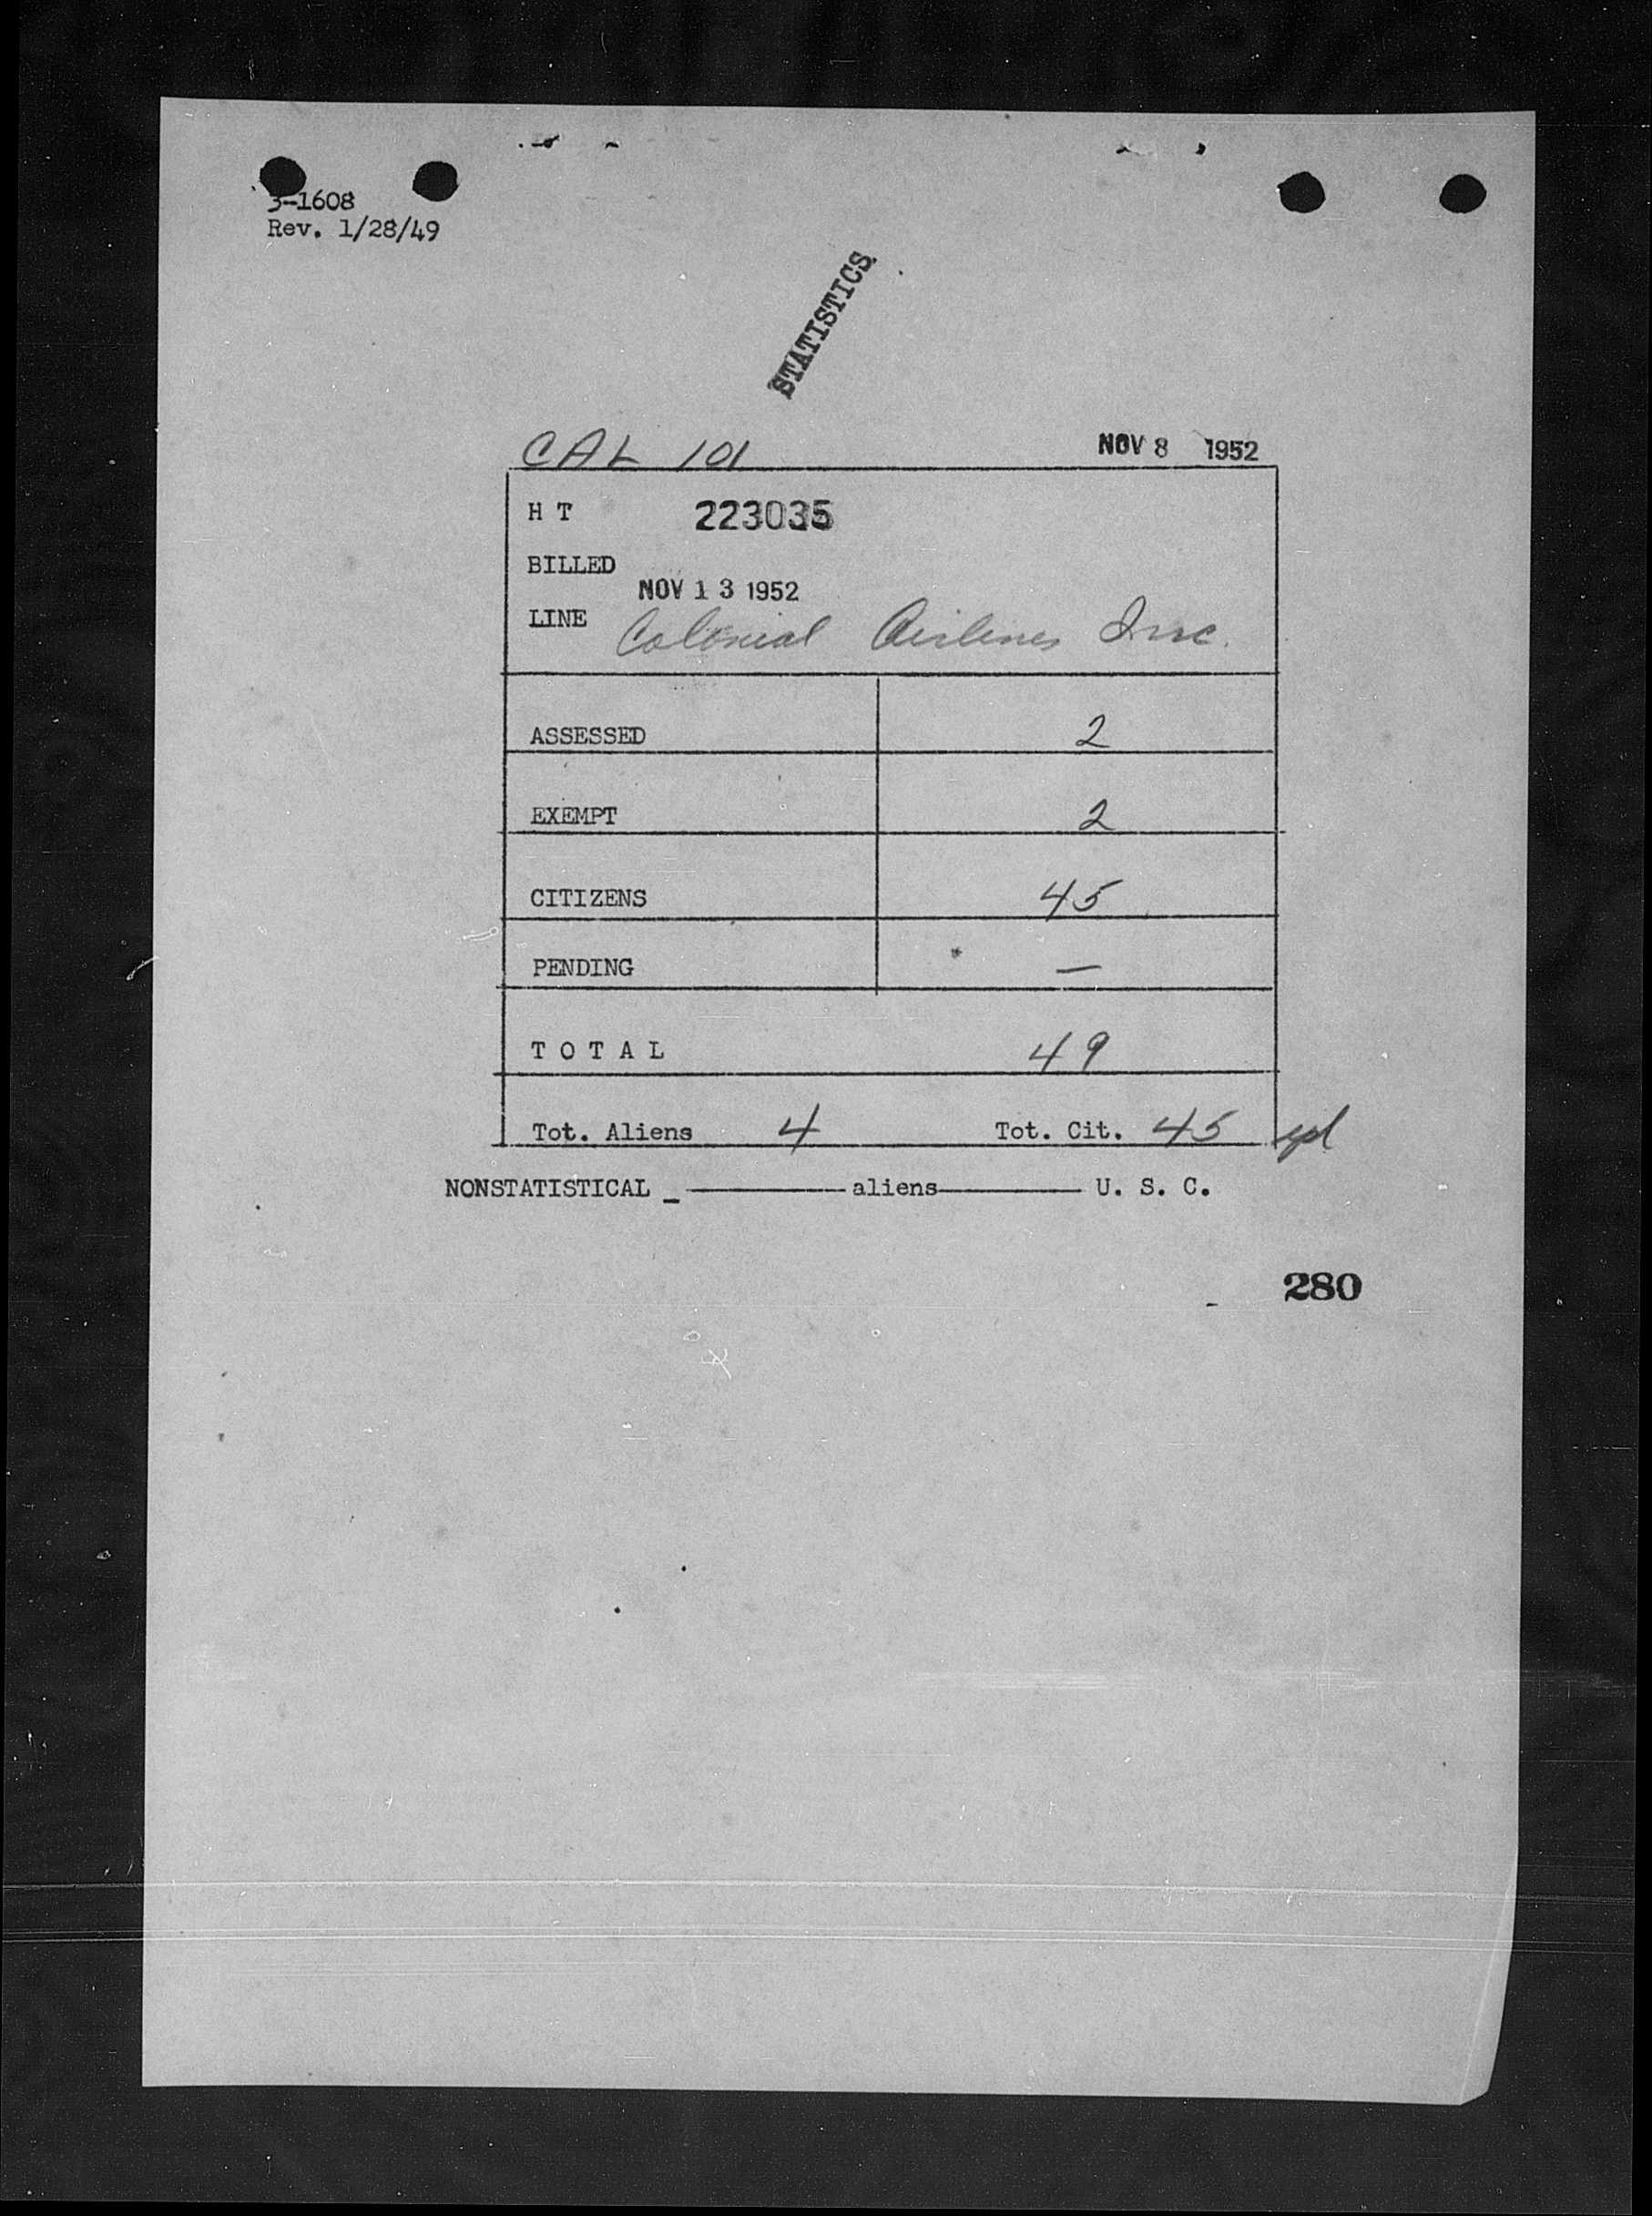 3-1608
Rev. 1/28/49
STATISTICS
CAL 101 NOV 8 1952
H T 223035
BILLED
NOV 13 1952
LINE Colonial Airlines Inc.
ASSESSED 2
EXEMPT 2
CITIZENS 45
PENDING —
T O T A L 49
Tot. Aliens 4 Tot. Cit. 45
NONSTATISTICAL _ ———— aliens ———— U. S. C.
280